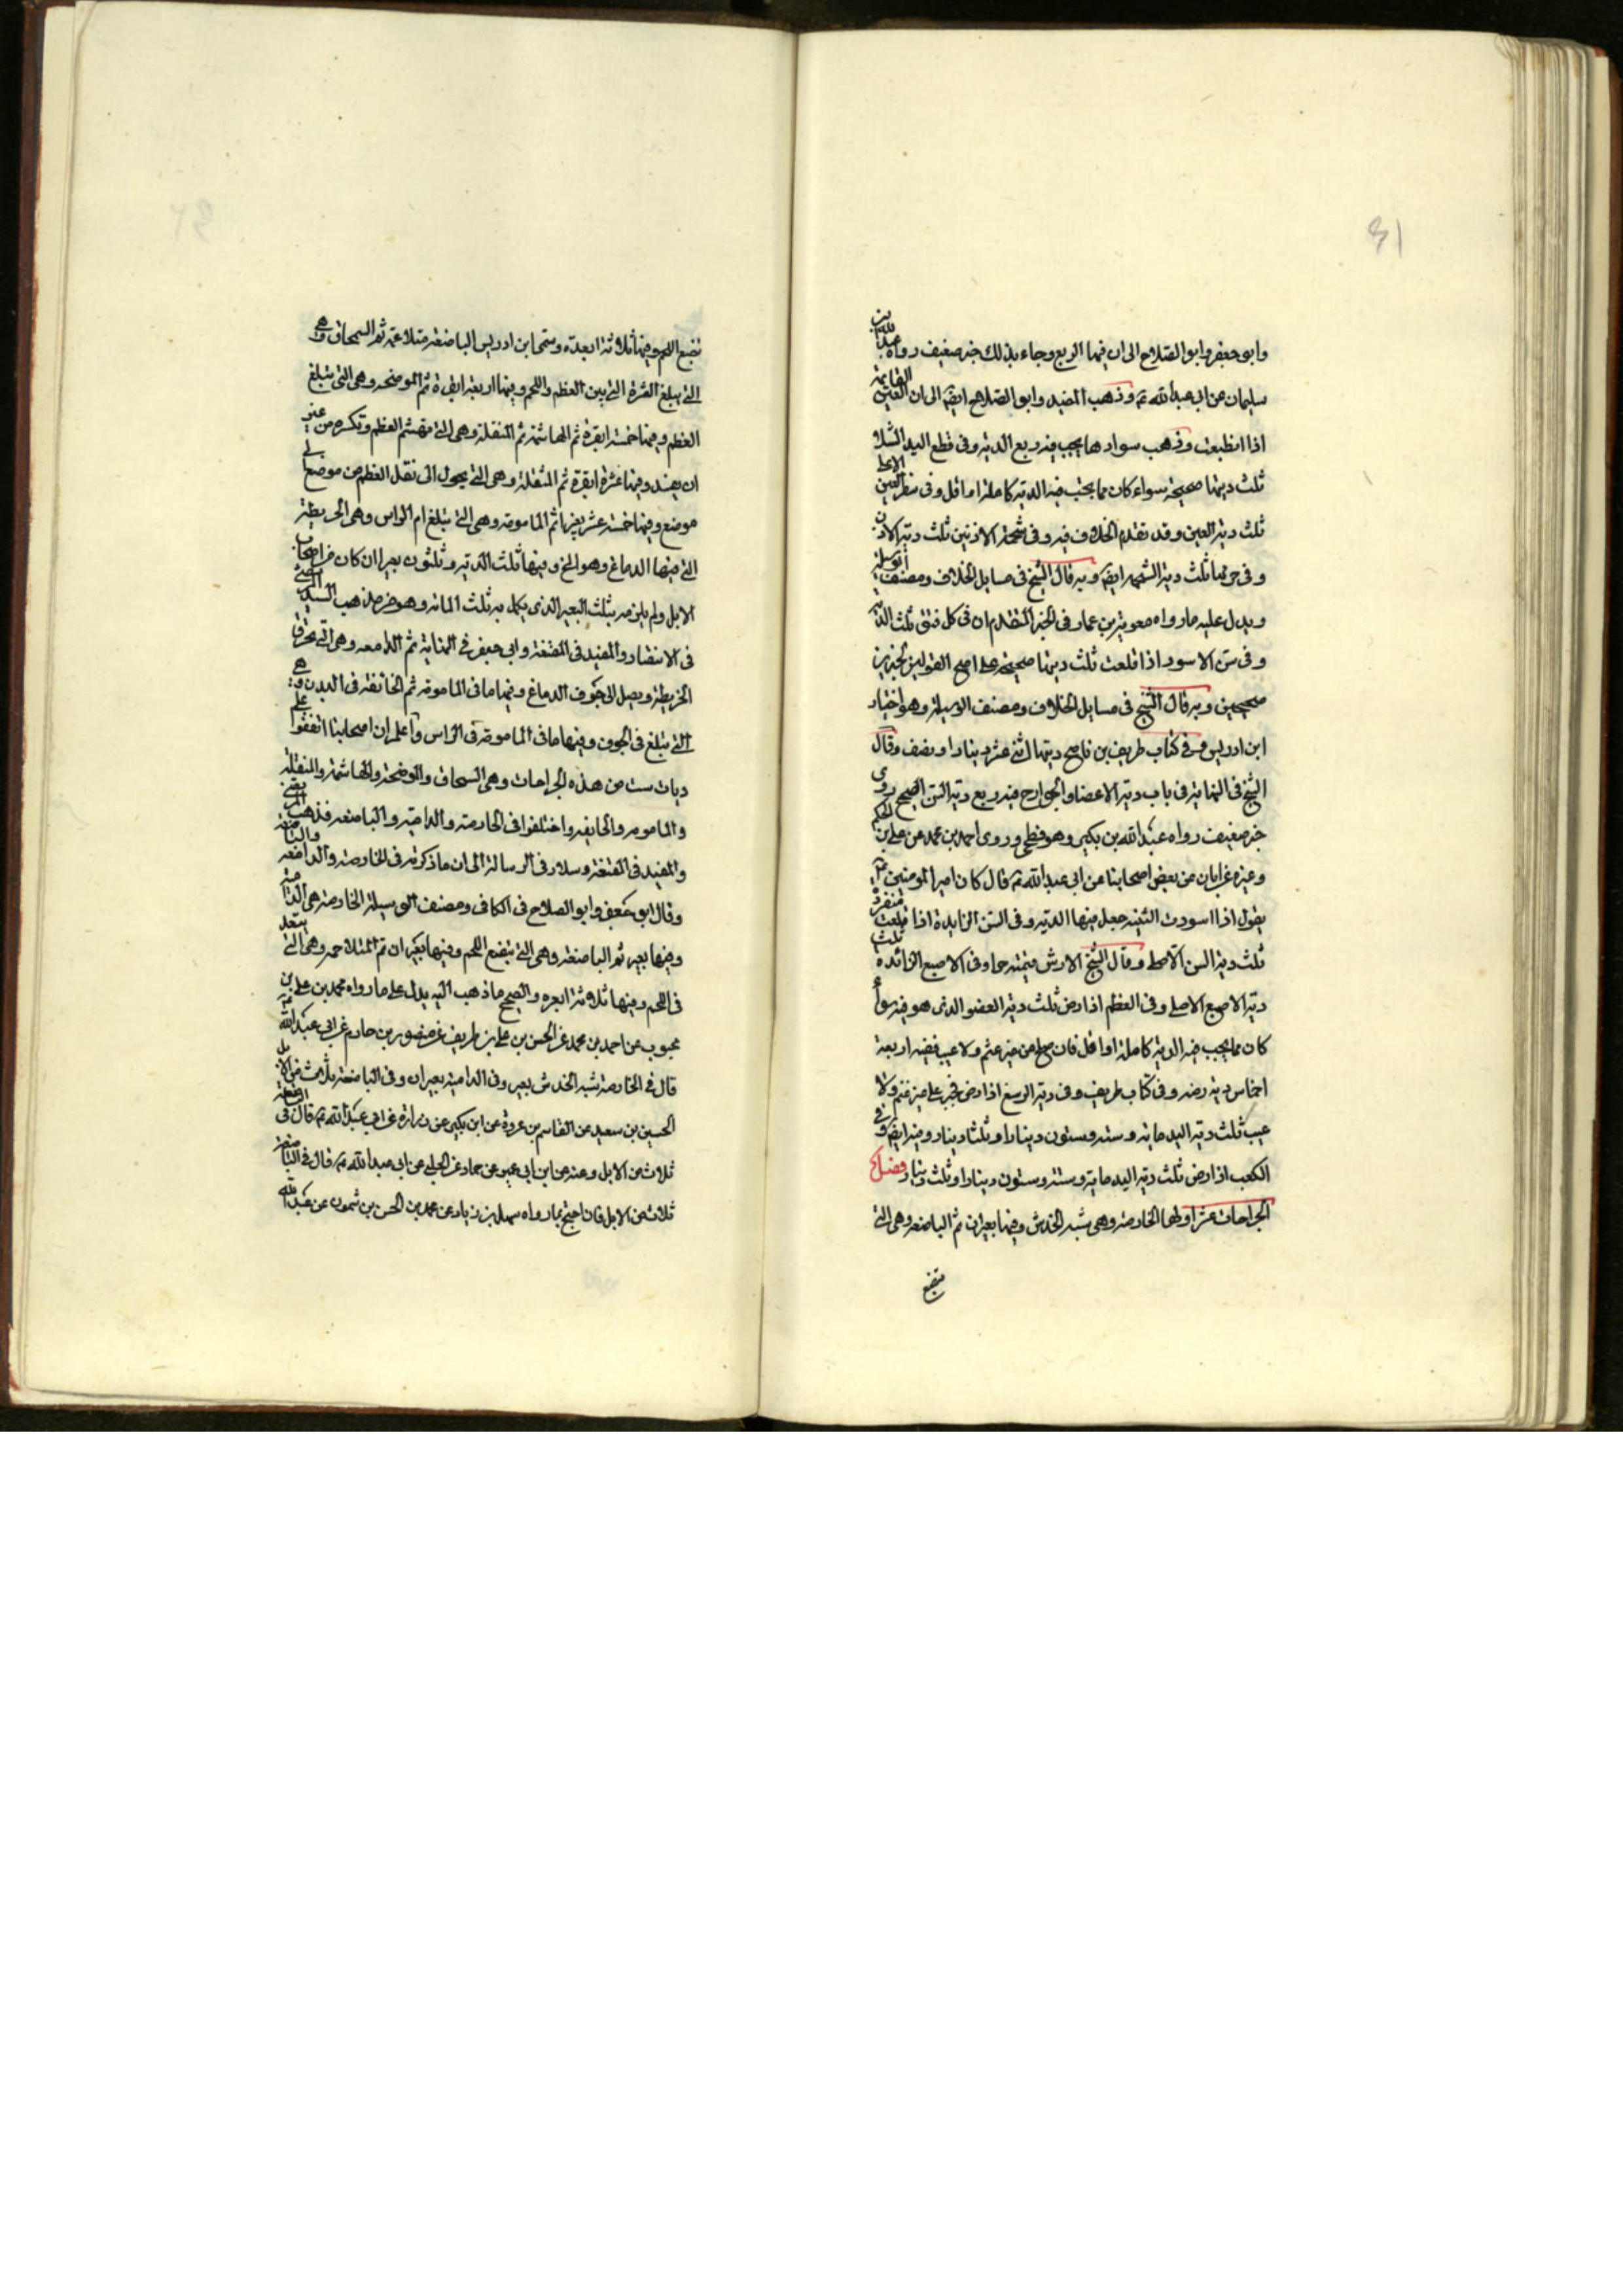 وابو جعفر وابو الصلاح الى ان فيها الربع وجاء بذلك خبر ضعيف رواه عبدالله بن
سليمان عن ابي عبدالله ع وذهب المفيد وابو الصلاح ايضا الى ان العين القايمة
اذا انطبعت وذهب سوادها يجب فيه ربع الدية وفى قطع اليد الشلاء
ثلث ديتها صحيحة سواء كان مما يجب فيه الدية كاملة او اقل وفى شفر العين الاعلى
ثلث دية العين وقد تقدم الخلاف فيه وفى شحمة الاذنين ثلث دية الاذن
وفى خرمها ثلث دية الشحمة ايضا وبه قال الشيخ فى مسايل الخلاف ومصنف الوسيلة
ويدل عليه ما رواه معوية بن عمار فى الخبر المتقدم ان فى كل فتق ثلث الدية
وفى سن الاسود اذا قلعت ثلث ديتها صحيحة على اصح القولين لخبرين
صحيحين وبه قال الشيخ فى مسايل الخلاف ومصنف الوسيلة وهو اختيار
ابن ادريس وفى كتاب طريف بن ناصح ديتها اثنى عشر دينارا ونصف وقال
الشيخ فى النهاية فى باب دية الاعضا والجوارح فيه ربع دية السن الصحيح روى
خبر ضعيف رواه عبدالله بن بكير وهو فطحى وروى احمد بن محمد عن على بن الحكم
وغيره عن ابان عن بعض اصحابنا عن ابى عبدالله ع قال كان امير المومنين ع
يقول اذا اسودت الثنية جعل فيها الدية وفى السن الزايدة اذا قلعت منفردة
ثلث دية السن الاصلى وقال الشيخ الارش وفى الاصبع الزائدة ثلث
دية الاصبع الاصلى وفى العظم اذا رض ثلث دية العضو الذى هو فيه سواء
كان مما يجب فيه الدية كاملة او اقل فان صلح من غير عثم ولا عيب ففيه اربعة
اخماس دية رضه وفى كتاب طريف وفى دية الرسغ اذا رض فجبر على غير عثم ولا
عيب ثلث دية اليد ماية وستة وستون دينارا وثلثا دينار وفيه ايضا وفى
الكعب اذا رض ثلث دية اليد ماية وستة وستون دينارا وثلث دينار فصل
الجراحات عشر اولها الخارصة وهى شبه الخدش وفيها بعيران ثم الباضعة وهى التى
تبضع
تبضع اللحم وفيها ثلاثة ابعرة وسمى ابن ادريس الباضعة متلاحمة ثم السمحاق وهى
التى يبلغ القشرة التى بين العظم واللحم وفيها اربعة ابعرة ثم الموضحة وهى التى تبلغ
العظم وفيها خمسة ابعرة ثم الهاشمة ثم المنقلة وهى التى تهشم العظم وتكسره من غير
ان يفسد وفيها عشرة ابعرة ثم المنقلة وهى التى يحول الى نقل العظم من موضع الى
موضع وفيها خمسة عشر بعيرا ثم المامومة وهى التى تبلغ ام الراس وهى الخريطة
التى فيها الدماغ وهو المخ وفيها ثلث الدية وثلثون بعيرا ان كان من اصحاب
الابل ولم يلزمه ثلث البعير الذى يكمل به ثلث الماية وهو مذهب السيد المرتضى
فى الانتصار والمفيد فى المقنعة وابى جعفر فى النهاية ثم الدامعة وهى التى تخرق
الخريطة ويصل الى جوف الدماغ وفيها ما فى المامومة ثم الجائفة فى البدن وهى
التى تبلغ فى الجوف وفيها ما فى المامومة فى الراس واعلم ان اصحابنا اتفقوا على
ديات ست من هذه الجراحات وهى السمحاق والموضحة والهاشمة والمنقلة
والمامومه والجايفه واختلفوا فى الخارصة والدامية والباضعه فذهب المرتضى
والمفيد فى المقنعة وسلار فى الرسالة الى ان ما ذكرته فى الخارصة والدامعه والباضعة
وقال ابو جعفر وابو الصلاح فى الكافى ومصنف الوسيلة الخارصة هى الدامية
وفيها بعير ثم الباضعة وهى التى تبضع اللحم وفيها بعيران ثم المتلاحمه وهى التى تنفذ
فى اللحم وفيها ثلاثة ابعره والصحيح ما ذهب اليه يدل على ما رواه محمد بن على بن
محبوب عن احمد بن محمد عن الحسن بن على بن طريف عن منصور بن حازم عن ابى عبدالله ع
قال فى الخارصة شبه الخدش بعير وفى الدامية بعيران وفى الباضعة ثلاث من الابل
الحسين بن سعيد عن القاسم بن عروة عن ابن بكير عن زرارة عن ابى عبدالله ع قال فى الباضعة
ثلاث من الابل وعنه عن ابن ابى عمير عن حماد عن الحلبى عن ابى عبدالله ع قال فى الباضعة
ثلاث من الابل فان احتج بما رواه سهل بن زياد عن محمد بن الحسن بن شمون عن عبدالله